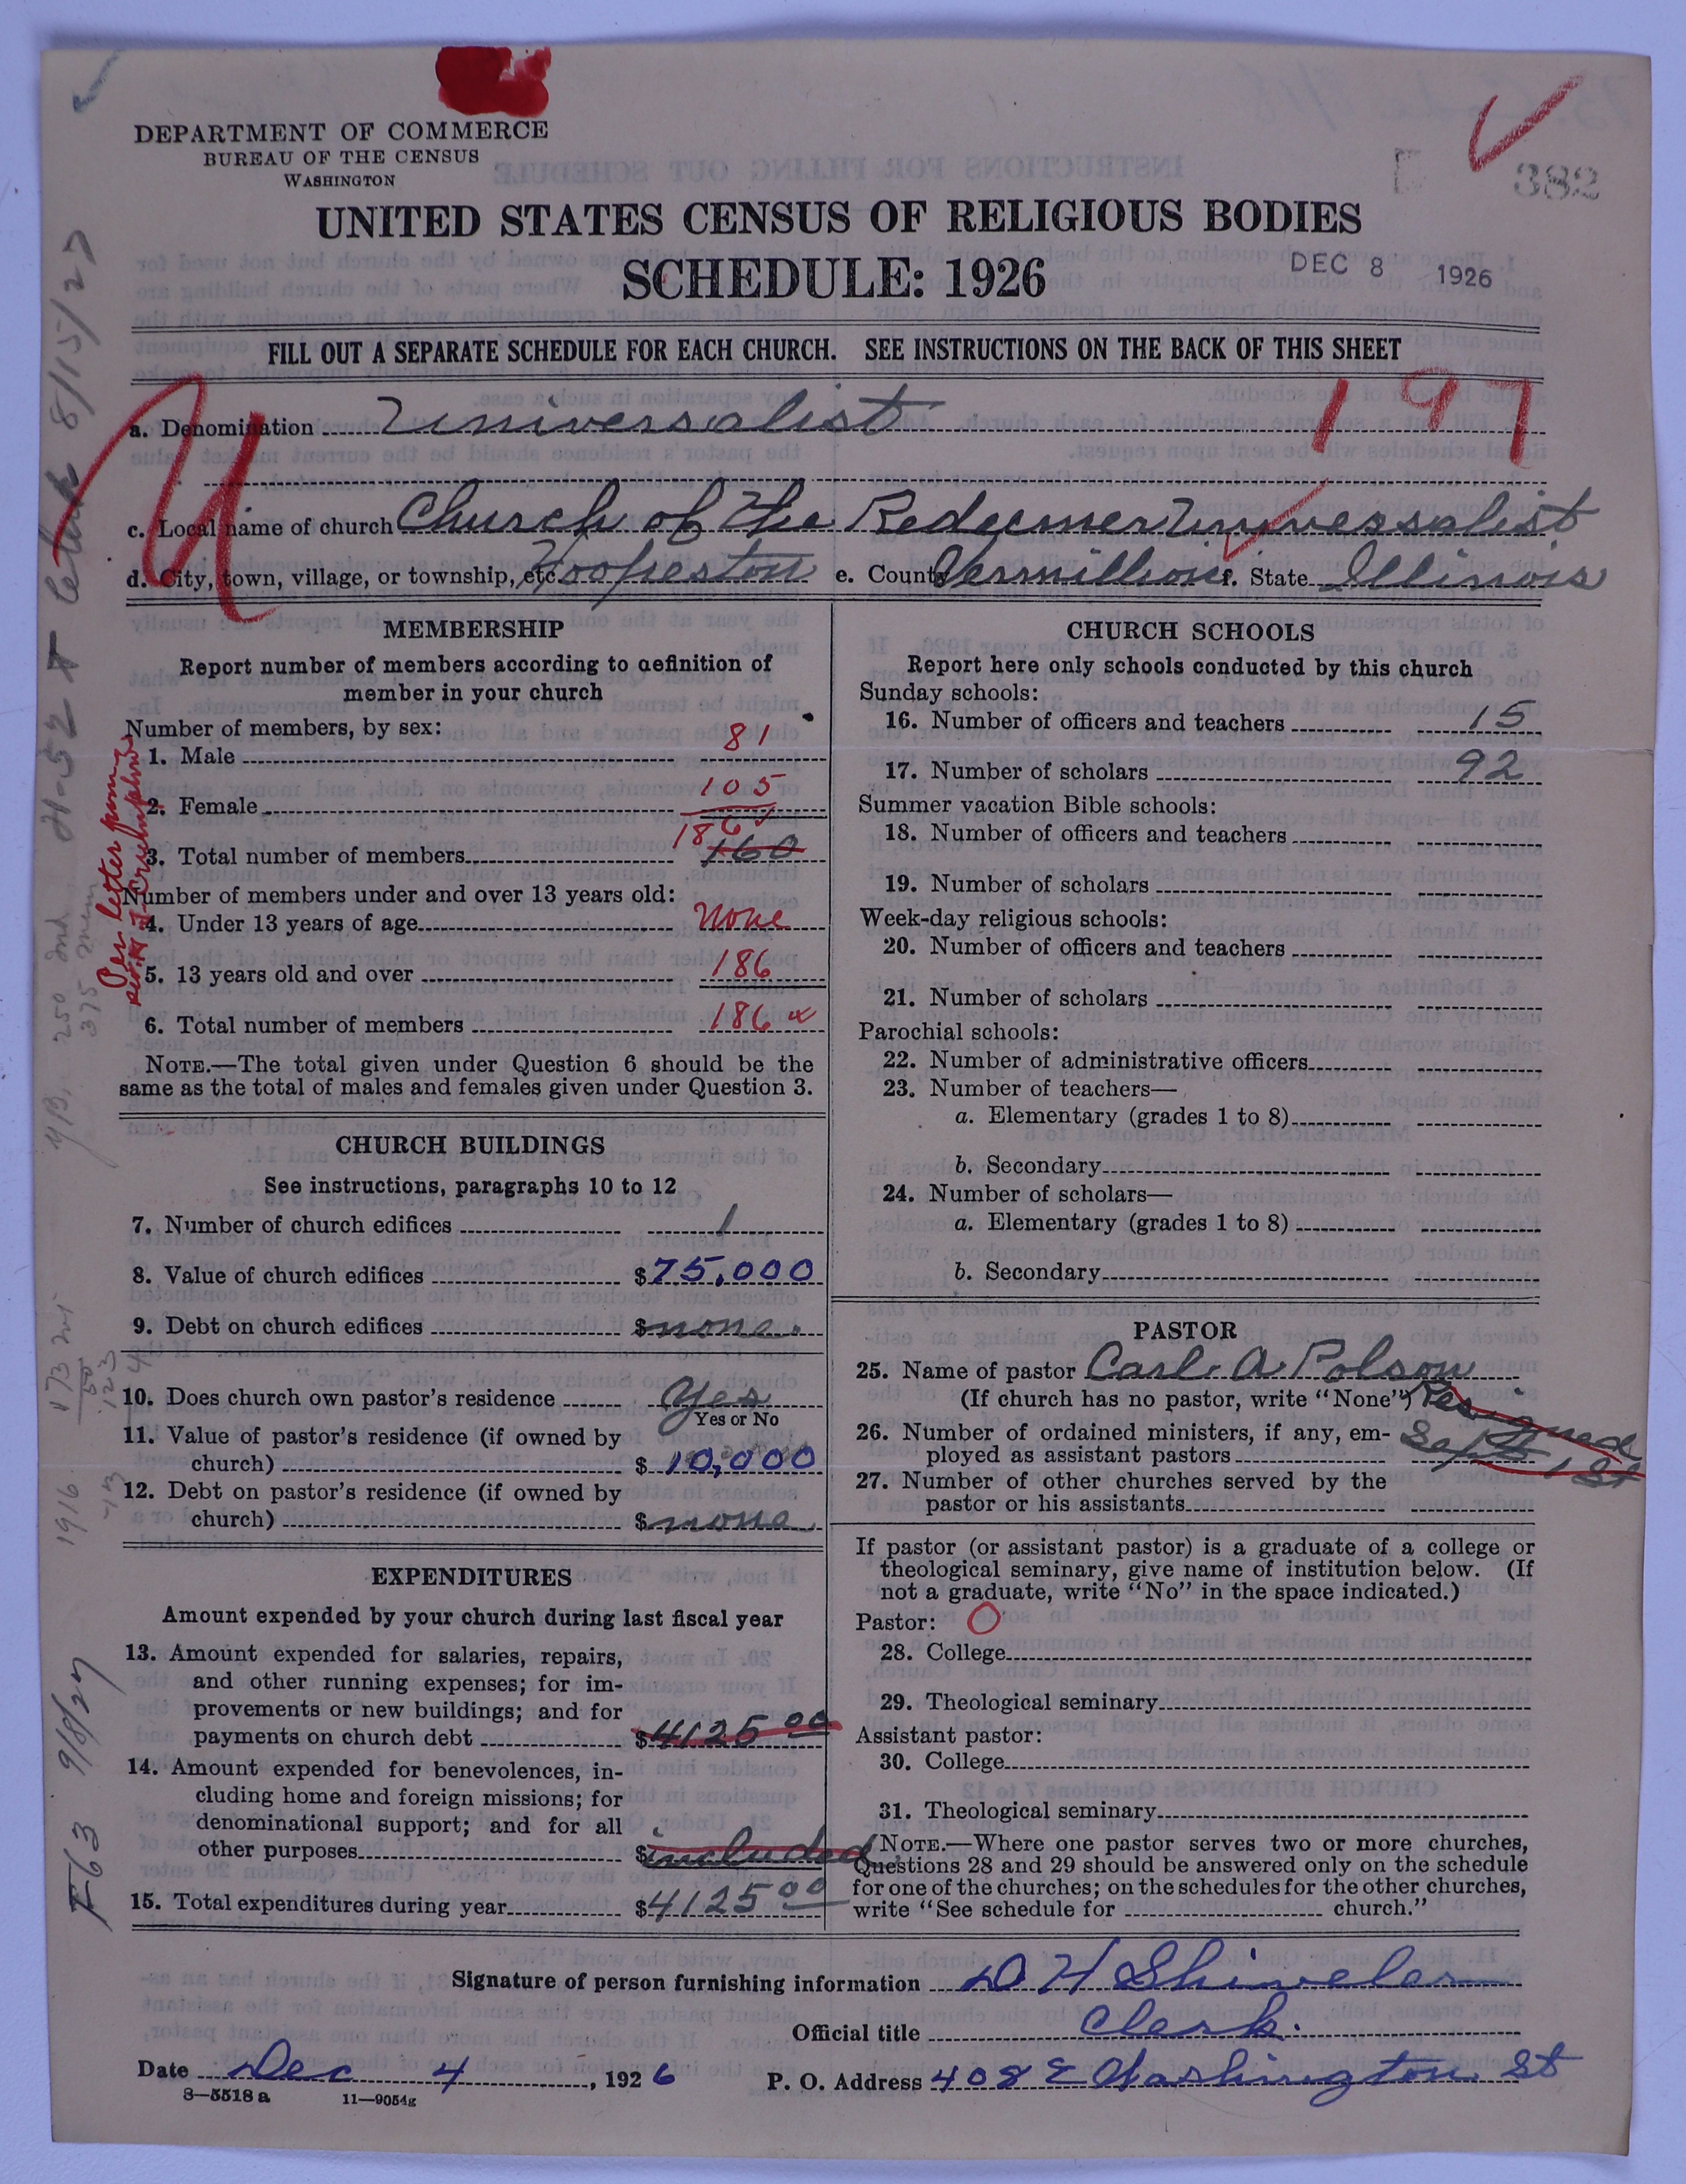 DEPARTMENT OF COMMERCE
BUREAU OF THE CENSUS
WASHINGTON
382
UNITED STATES CENSUS OF RELIGIOUS BODIES
SCHEDULE: 1926
DEC 8 1926
FILL OUT A SEPARATE SCHEDULE FOR EACH CHURCH. SEE INSTRUCTIONS ON THE BACK OF THIS SHEET
197
U
a. Denomination Universalist
c. Local name of church Church of the Redeemer Universalist
d. City, town, village, or township, etc. Hoopeston e. County Vermillion f. State Illinois
MEMBERSHIP
Report number of members according to definition of
member in your church
Number of members, by sex:
1. Male 81
2. Female 105
3. Total number of members 186 160
Number of members under and over 13 years old:
4. Under 13 years of age None
5. 13 years old and over 186
6. Total number of members 186
NOTE.—The total given under Question 6 should be the
same as the total of males and females given under Question 3.
CHURCH BUILDINGS
See instructions, paragraphs 10 to 12
7. Number of church edifices 1
8. Value of church edifices $75,000
9. Debt on church edifices $none
10. Does church own pastor's residence Yes
Yes or No
11. Value of pastor's residence (if owned by
church) $10,000
12. Debt on pastor's residence (if owned by
church) $none
EXPENDITURES
Amount expended by your church during last fiscal year
13. Amount expended for salaries, repairs,
and other running expenses; for im-
provements or new buildings; and for
payments on church debt $4125 00
14. Amount expended for benevolences, in-
cluding home and foreign missions; for
denominational support; and for all
other purposes $included
15. Total expenditures during year $4125 00
CHURCH SCHOOLS
Report here only schools conducted by this church
Sunday schools:
16. Number of officers and teachers 15
17. Number of scholars 92
Summer vacation Bible schools:
18. Number of officers and teachers
19. Number of scholars
Week-day religious schools:
20. Number of officers and teachers
21. Number of scholars
Parochial schools:
22. Number of administrative officers
23. Number of teachers—
a. Elementary (grades 1 to 8)
b. Secondary
24. Number of scholars—
a. Elementary (grades 1 to 8)
b. Secondary
PASTOR
25. Name of pastor Carl A Polson
(If church has no pastor, write "None") Resigned
26. Number of ordained ministers, if any, em-
ployed as assistant pastors Sept 1st
27. Number of other churches served by the
pastor or his assistants
If pastor (or assistant pastor) is a graduate of a college or
theological seminary, give name of institution below. (If
not a graduate, write "No" in the space indicated.)
Pastor: O
28. College
29. Theological seminary
Assistant pastor:
30. College
31. Theological seminary
NOTE.—Where one pastor serves two or more churches,
Questions 28 and 29 should be answered only on the schedule
for one of the churches; on the schedules for the other churches,
write "See schedule for church."
Signature of person furnishing information D H Shiveler
Official title Clerk.
Date Dec 4, 1926 P. O. Address 408 E Washington St
8—5518 a 11—9054g
8/15/27
Per letter from
F63 9/8/27
1916